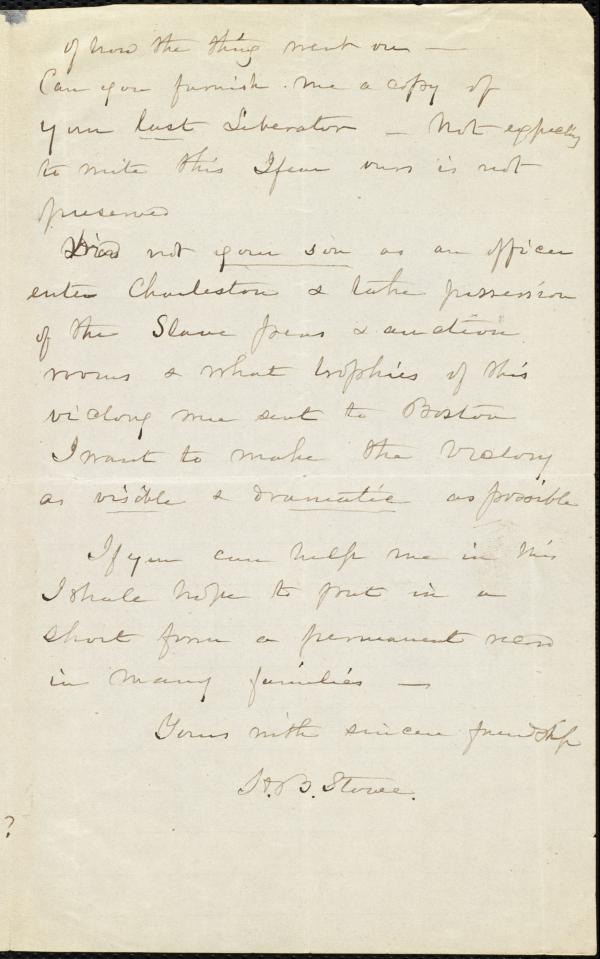 of how the thing went on —
Can you furnish me a copy of
your last Liberator — Not expecting
to write this I fear ours is not
preserved
Did not your son as an officer
enter Charleston & take possession
of the Slave pens & auction
rooms & what trophies of this
victory were sent to Boston
I want to make the victory
as visible & dramatic as possible
If you can help me in this
I shale hope to put in a
short form a permanent record
in many families —
Yours with sincere friendship
H. B. Stowe.
?